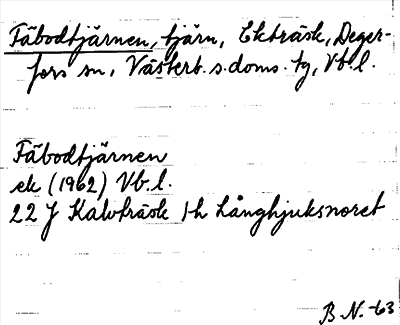 Fäbodtjärnen, tjärn, Ekträsk, Deger-
fors sn, Västerb. s. doms. tg, Vb. l.
Fäbodtjärnen
ek (1962) Vb. l.
22 J Kalvträsk 1h Långhjuksnoret
B N. -63